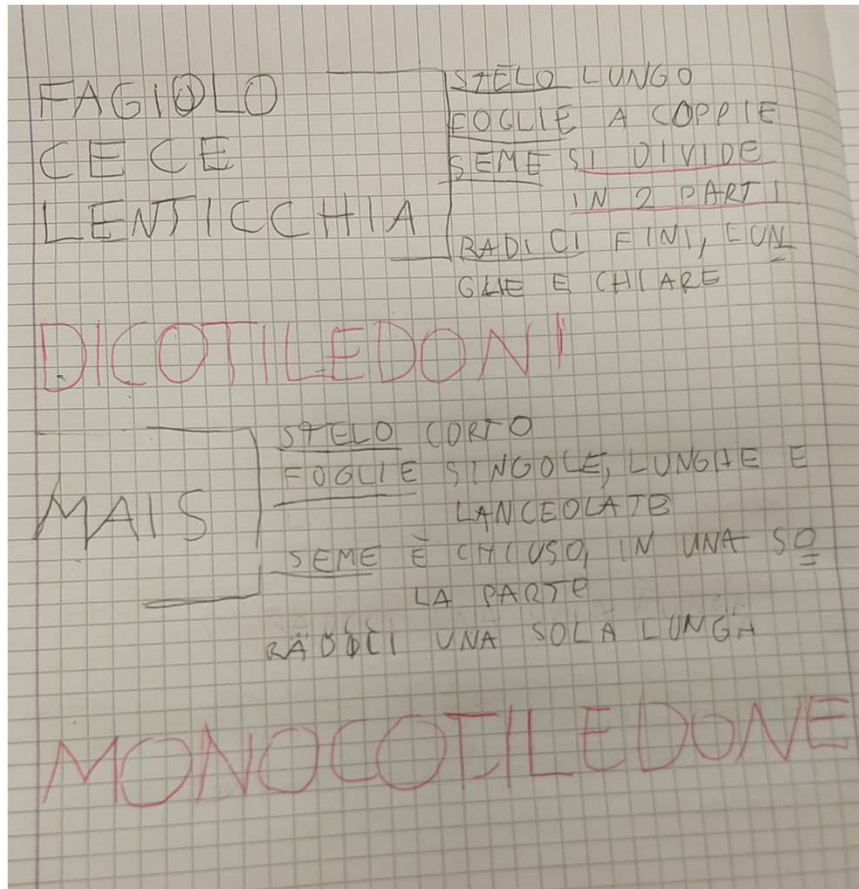 FAGIOLO
CECE
LENTICCHIA
STELO LUNGO
FOGLIE A COPPIE
SEME SI DIVIDE
IN 2 PARTI
RADICI FINI, LUN
GHE E CHIARE
DICOTILEDONI
MAIS
STELO CORTO
FOGLIE SINGOLE, LUNGHE E
LANCEOLATE
SEME È CHIUSO, IN UNA SO
LA PARTE
RADICI UNA SOLA LUNGA
MONOCOTILEDONE